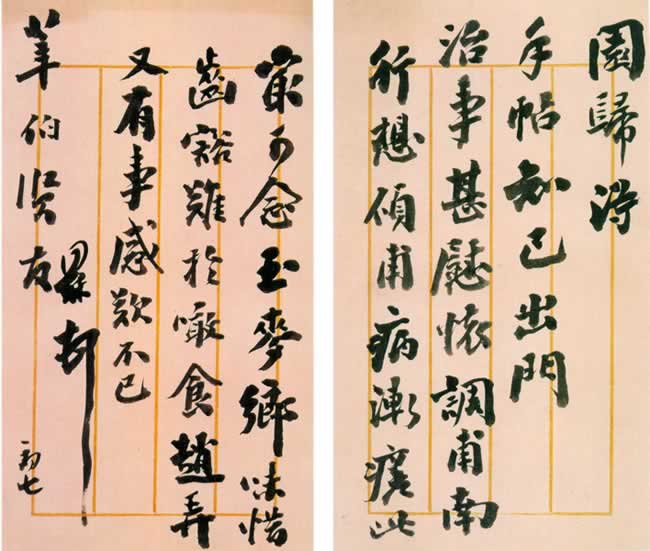 園歸得
手帖知已出門
治事甚慰懷調甫南
行想甫病漸瘥此
最可念玉麥鄉味惜
齒豁難於噉食趙弄
又有事感歎不已
伯賢友
邨
初七